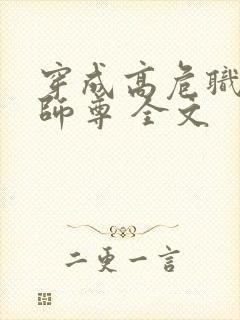 穿成高危職
師尊 全文
二更一言